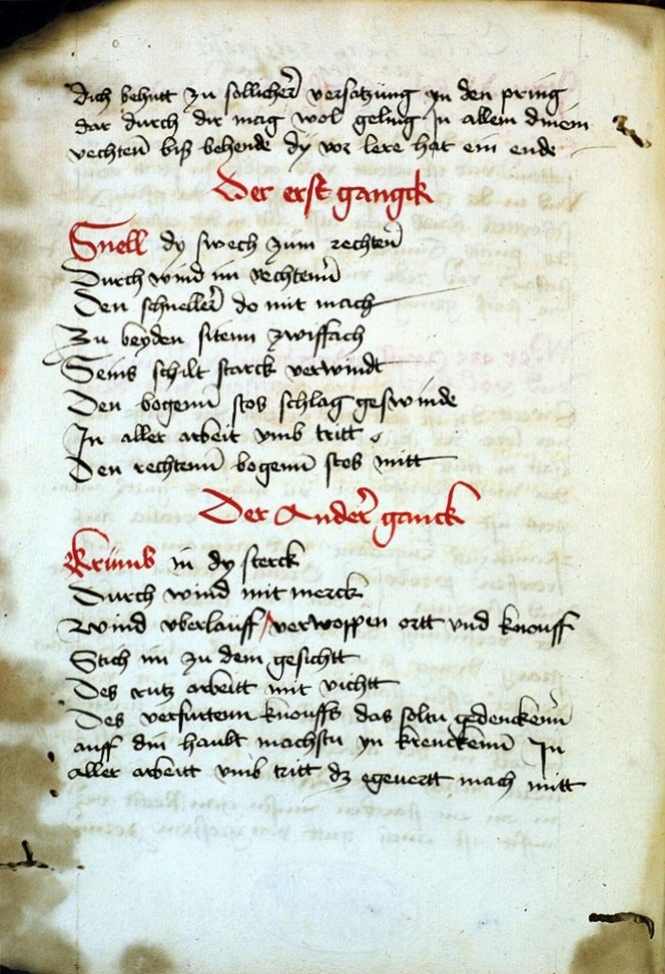 dich behutt zu sollicher versatzung yn den pring
dar durch dir mag wol geling Jn allem dinem
vechten biß behende dy vor lere hat ein ende
Der erst gangck
Snell dy swech zum rechten
Durch wind im vechtenn
Den schneller do mit mach
Zu beyden sitenn zwiffach
Seins schilt starck verwindt
Den bogenn stos schlag geswinde
Jn aller arbeit vmb tritt
Den rechtenn bogenn stos mitt
Der Ander ganck
Krumb in dy sterck
Durch wind mit merck
Wind vberlauff / verwoppen ortt vnd knouff
Stich im zu dem gesichtt
Des rutz arbeitt mit vichtt
Des verfurtenn knouffs das soltu gedenckenn
auff din haubt machstu yn krenckenn Jn
aller arbeitt vmb tritt dz egeuertt mach mitt